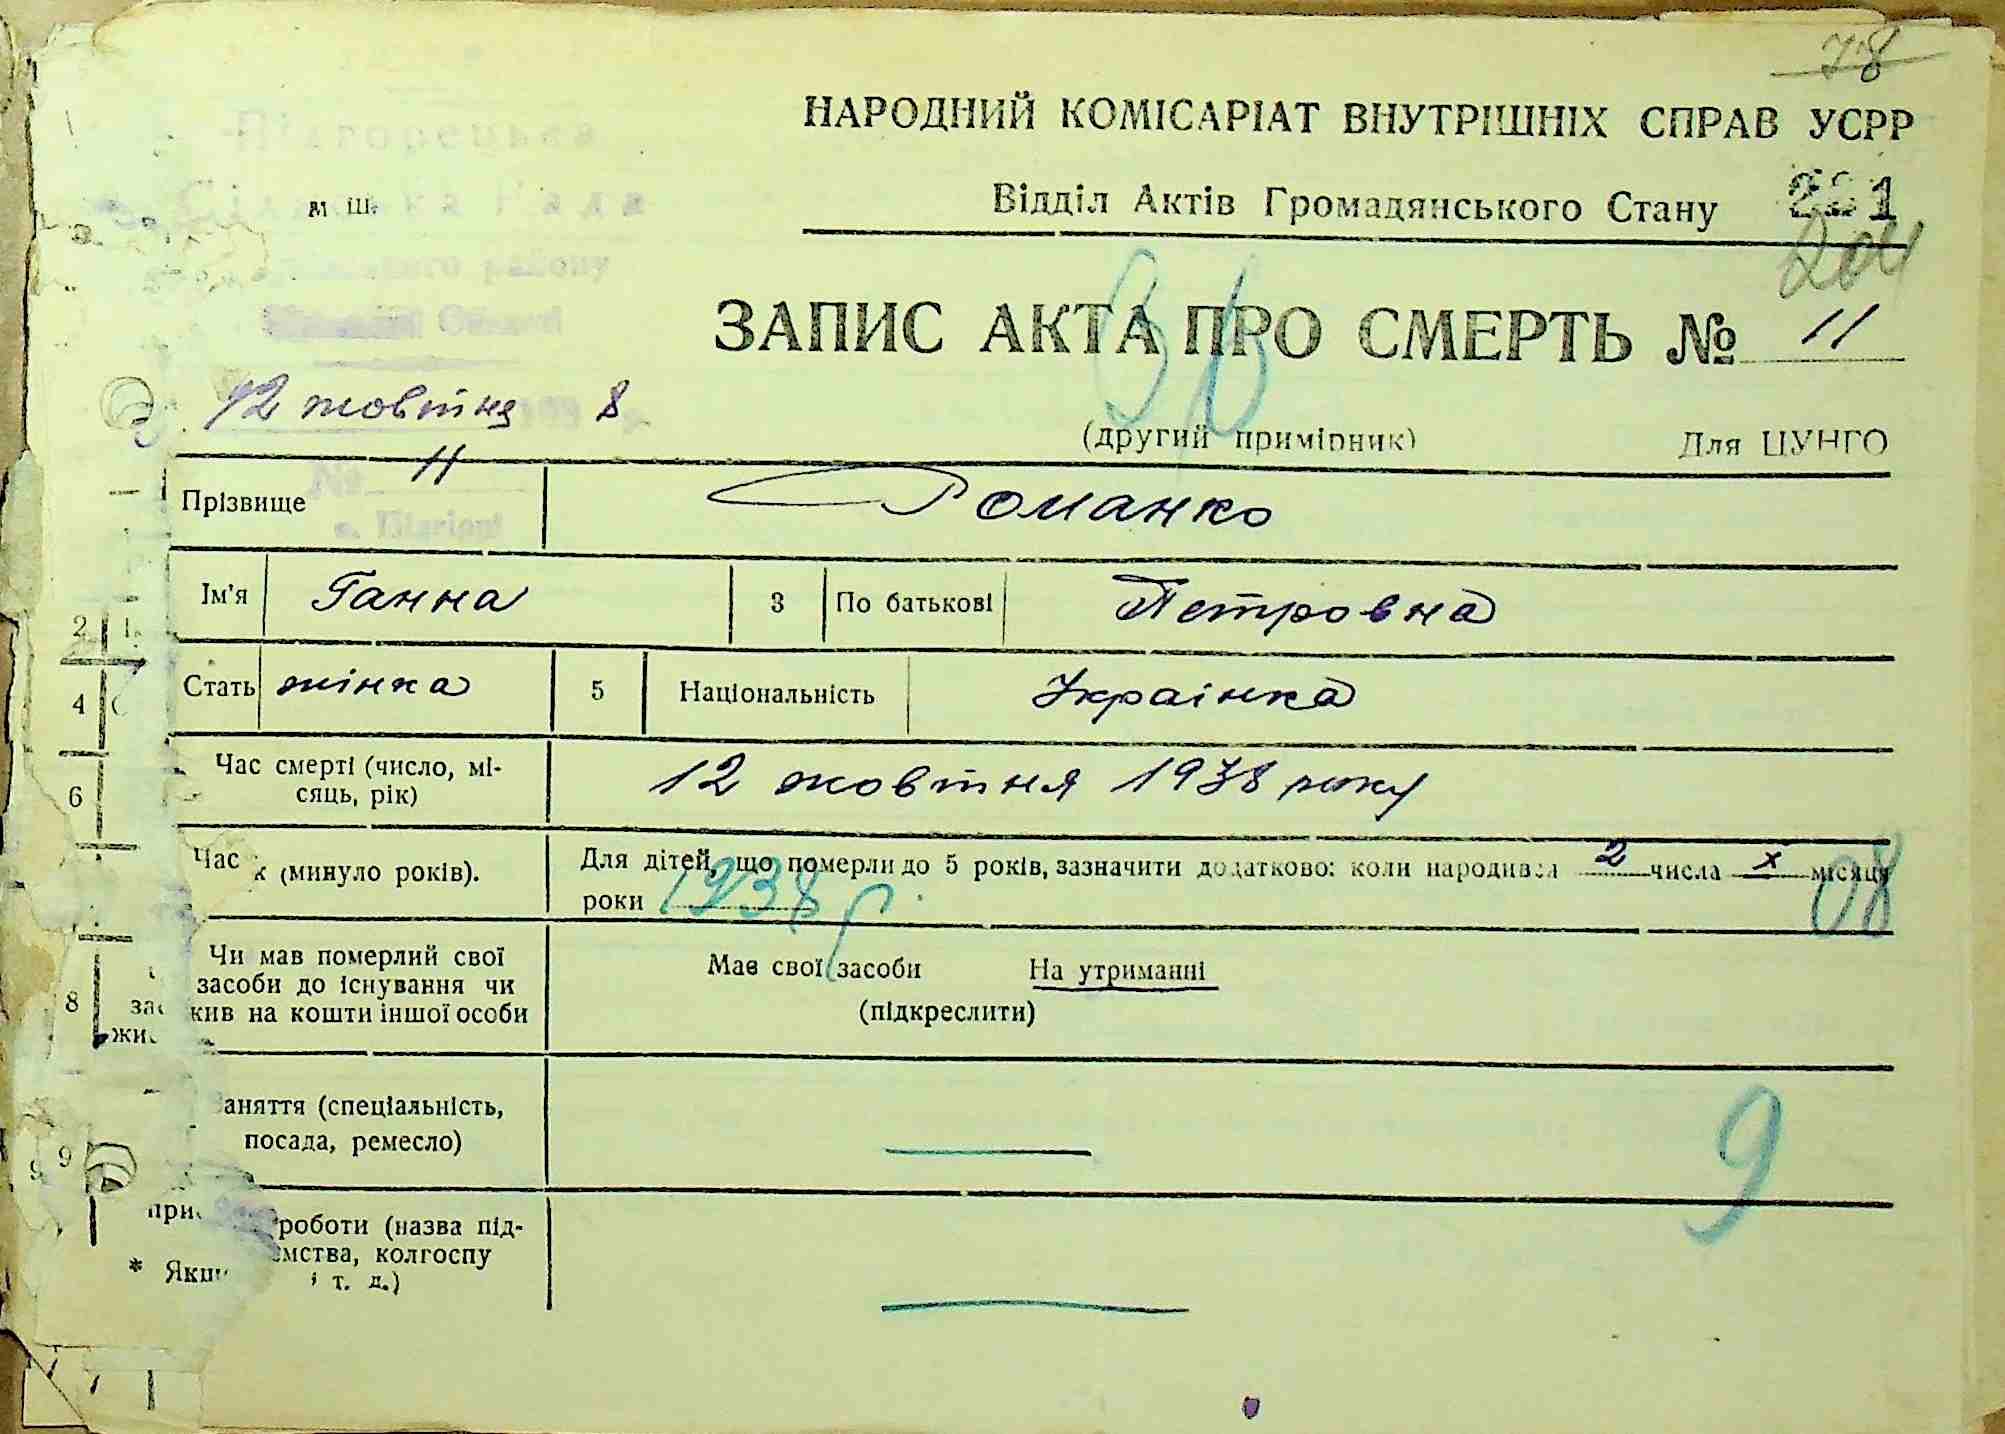 78
НАРОДНИЙ КОМІСАРІАТ ВНУТРІШНІХ СПРАВ УСРР
Підгорецька
Сільська Рада
м. ш.
Відділ Актів Громадянського Стану
221
204
району
Області
ЗАПИС АКТА ПРО СМЕРТЬ № 11
30
12 жовтня 193 8 р.
(другий примірник) Для ЦУНГО
№ 11
с. Підгірці
Прізвище Романко
Ім'я Ганна 3 По батькові Петровна
2 1
Стать жінка 5 Національність Українка
4
Час смерті (число, мі-
сяць, рік) 12 жовтня 1938 року
6
Час
(минуло років). Для дітей, що померли до 5 років, зазначити додатково: коли народився 2 числа х місяця
роки 1938 р. 08
Чи мав померлий свої
засоби до існування чи
жив на кошти іншої особи
Має свої засоби На утриманні
(підкреслити)
8
заняття (спеціальність,
посада, ремесло)
9
9
9
роботи (назва під-
ємства, колгоспу
і т. д.)
* Якщо